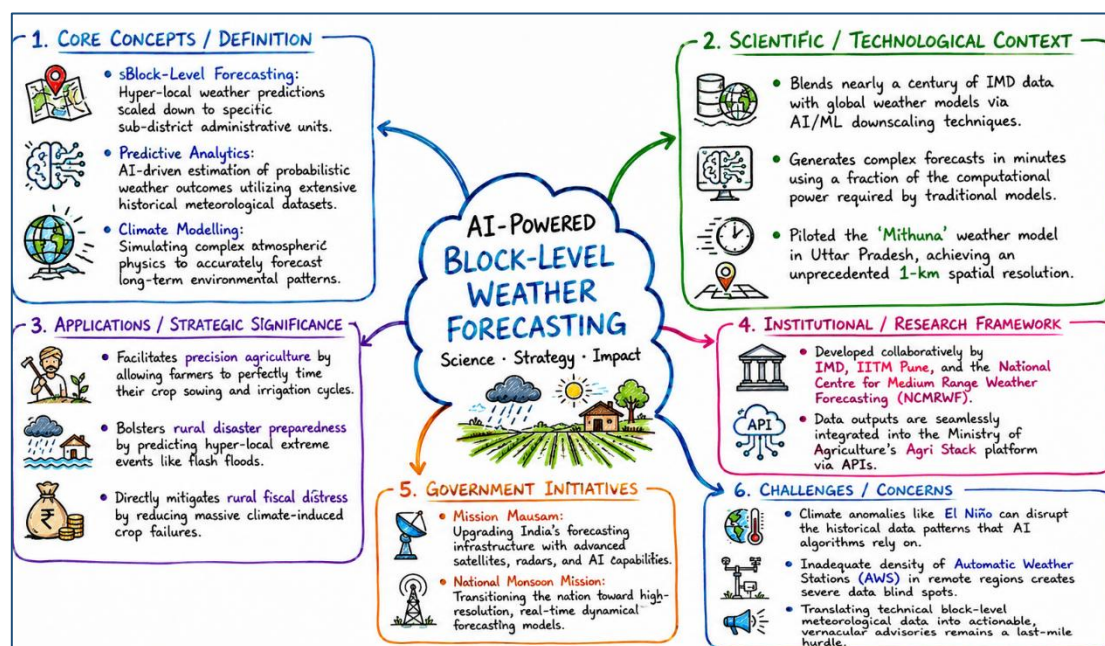 1. CORE CONCEPTS / DEFINITION
• sBlock-Level Forecasting:
Hyper-local weather predictions
scaled down to specitic
sub-district administrative units.
• Predictive Analytics:
AI-driven estimation of probabilistic
weather outcomes utilizing extensive
historical meteorological datasets.
• Climate Modelling:
Simulating complex atmospheric
physics to accurately forecast
long-term environmental patterns.
2. SCIENTIFIC / TECHNOLOGICAL CONTEXT
• Blends nearly a century of IMD data
with global weather models via
AI/ML downscaling techniques.
• Generates complex forecasts in minutes
using a fraction of the computational
power required by traditional models.
• Piloted the 'Mithuna' weather model
in Uttar Pradesh, achieving an
unprecedented 1-km spatial resolution.
AI-POWERED
BLOCK-LEVEL
WEATHER
FORECASTING
Science · Strategy · Impact
3. APPLICATIONS / STRATEGIC SIGNIFICANCE
• Facilitates precision agriculture by
allowing farmers to perfectly time
their crop sowing and irrigation cycles.
• Bolsters rural disaster preparedness
by predicting hyper-local extreme
events like flash floods.
₹
• Directly mitigates rural fiscal distress
by reducing massive climate-induced
crop failures.
4. INSTITUTIONAL / RESEARCH FRAMEWORK
• Developed collaboratively by
IMD, IITM Pune, and the National
Centre for Medium Range Weather
Forecasting (NCMRWF).
API
• Data outputs are seamlessly
integrated into the Ministry of
Agriculture's Agri Stack platform
via APIs.
5. GOVERNMENT INITIATIVES
• Mission Mausam:
Upgrading India's forecasting
infrastructure with advanced
satellites, radars, and AI capabilities.
• National Monsoon Mission:
Transitioning the nation toward high-
resolution, real-time dynamical
forecasting models.
6. CHALLENGES / CONCERNS
• Climate anomalies like El Niño can disrupt
the historical data patterns that AI
algorithms rely on.
• Inadequate density of Automatic Weather
Stations (AWS) in remote regions creates
severe data blind spots.
• Translating technical block-level
meteorological data into actionable,
vernacular advisories remains a last-mile
hurdle.